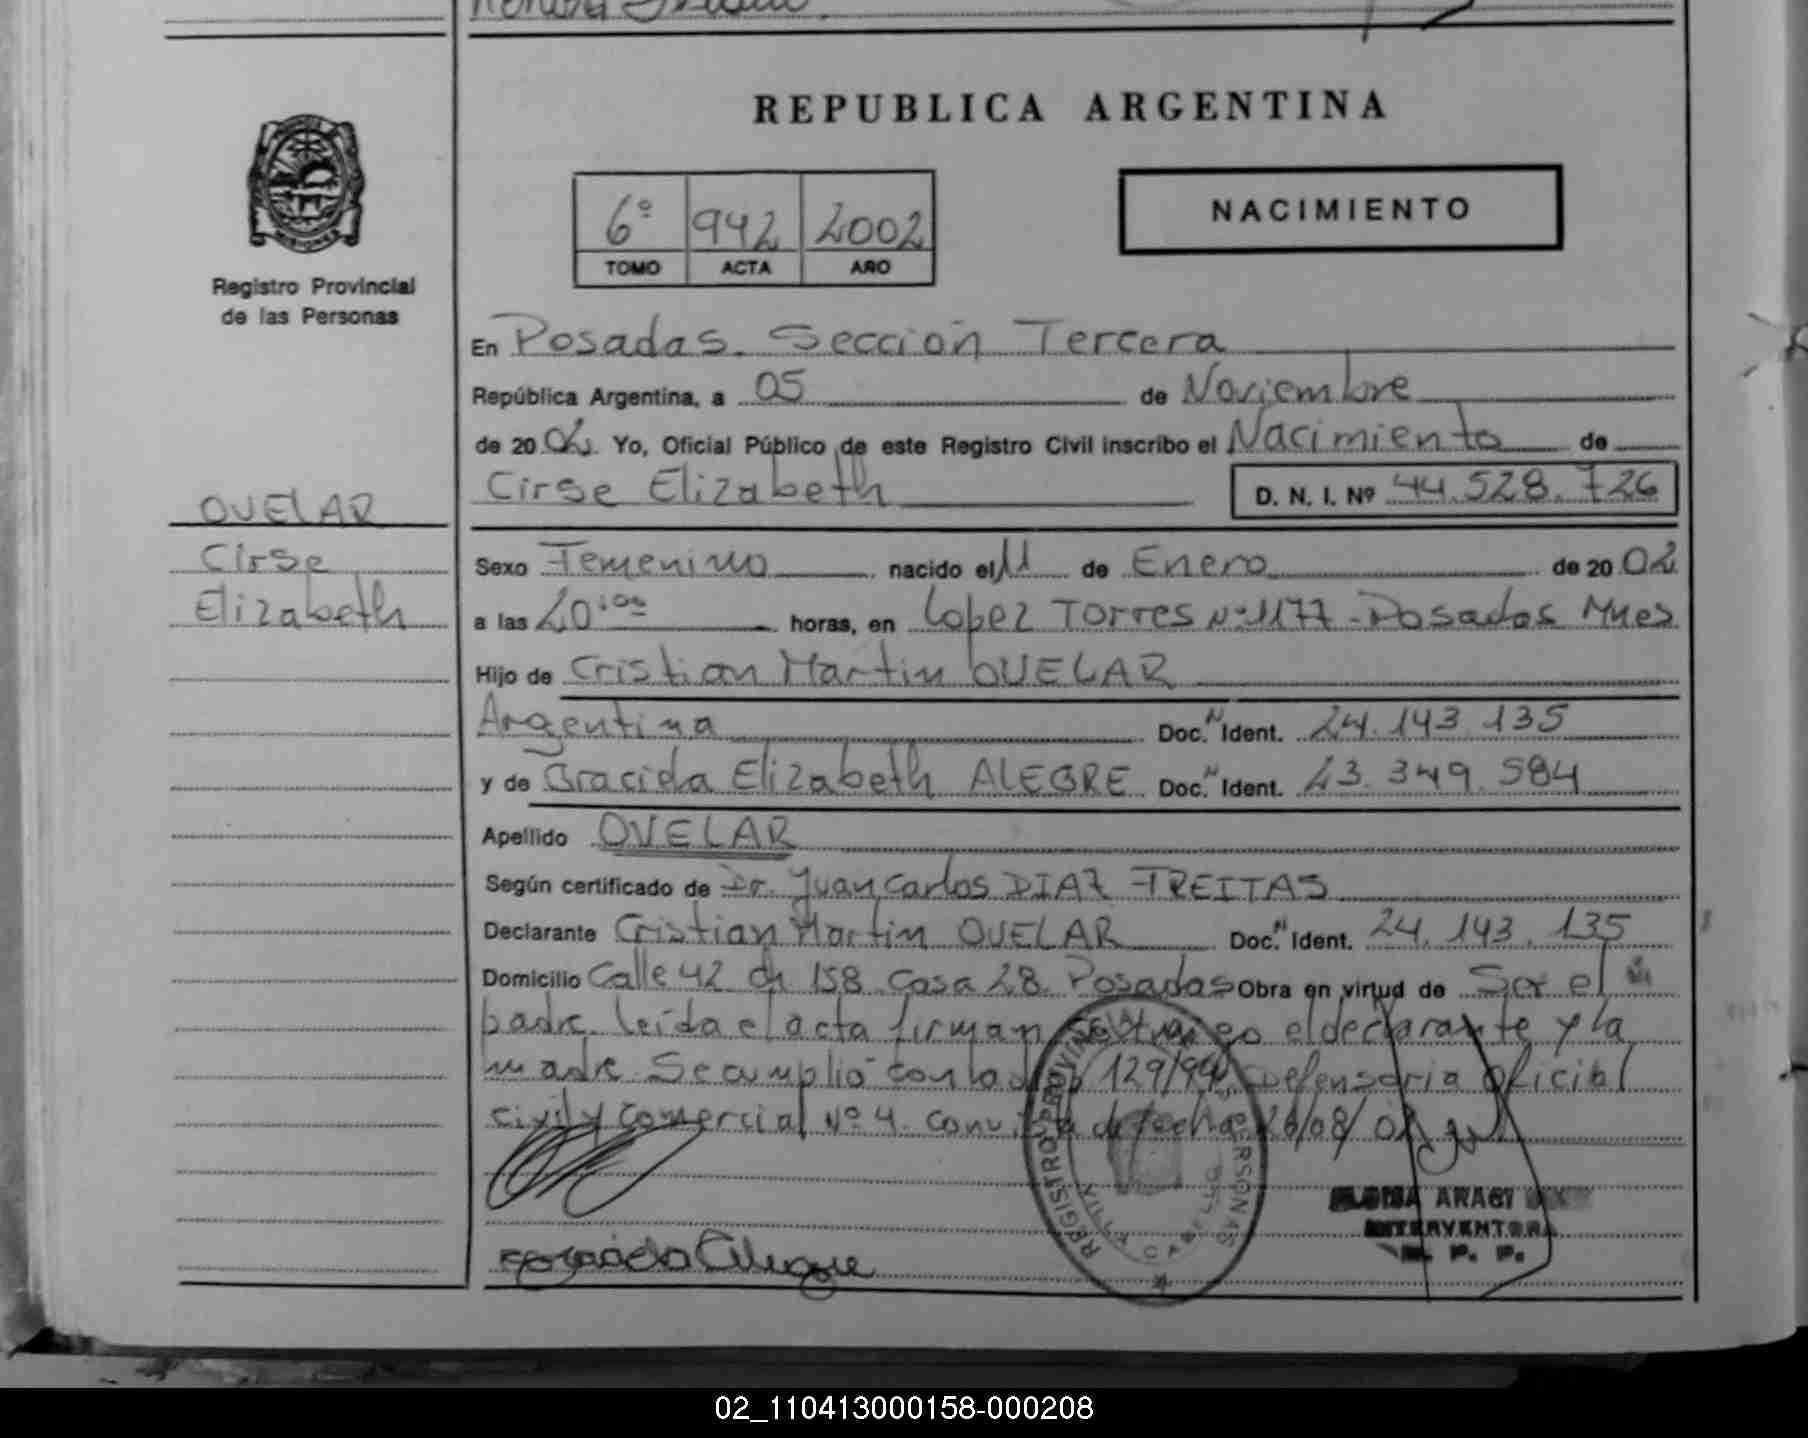 REPUBLICA ARGENTINA
MISIONES
Registro Provincial
de las Personas
6º 942 2002
TOMO ACTA AÑO
NACIMIENTO
En Posadas. Sección Tercera
República Argentina, a 05 de Noviembre
de 2002. Yo, Oficial Público de este Registro Civil inscribo el Nacimiento de
Cirse Elizabeth D. N. I. Nº 44.528.726
OVELAR
Cirse
Elizabeth
Sexo Femenino nacido el 11 de Enero de 2002
a las 20:00 horas, en Lopez Torres Nº 1177 - Posadas Mnes
Hijo de Cristian Martin OVELAR
Argentina Doc. N Ident. 24.143.135
y de Graciela Elizabeth ALEGRE Doc. N Ident. 23.349.584
Apellido OVELAR
Según certificado de Dr. Juan Carlos DIAZ FREITAS
Declarante Cristian Martin OVELAR Doc. N Ident. 24.143.135
Domicilio Calle 42 ch 158 Casa 28 Posadas Obra en virtud de Ser el
padre. Leída el acta firman conmigo el declarante y la
madre. Se cumplió con la 129/94, Defensoria Oficial
Civil y Comercial Nº 4. con vista de fecha 26/08/02
REGISTRO PROVINCIAL PERSONAS
VILLA CABELLO
ARACI
INTERVENTORA
R. P. P.
Graciela Alegre
02_110413000158-000208